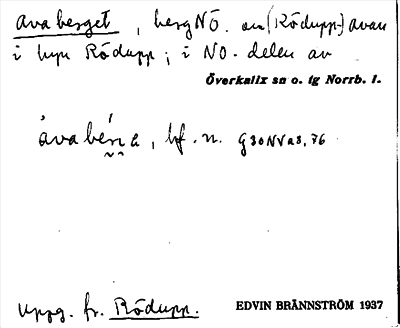 Avaberget, berg NÖ. om (Rödupp-) avan
i byn Rödupp; i NO. delen av
Överkalix sn o. tg Norrb. l.
ávabén̰a, bf. n. G 30 NV a 8, 76
Uppg. fr. Rödupp.
EDVIN BRÄNNSTRÖM 1937